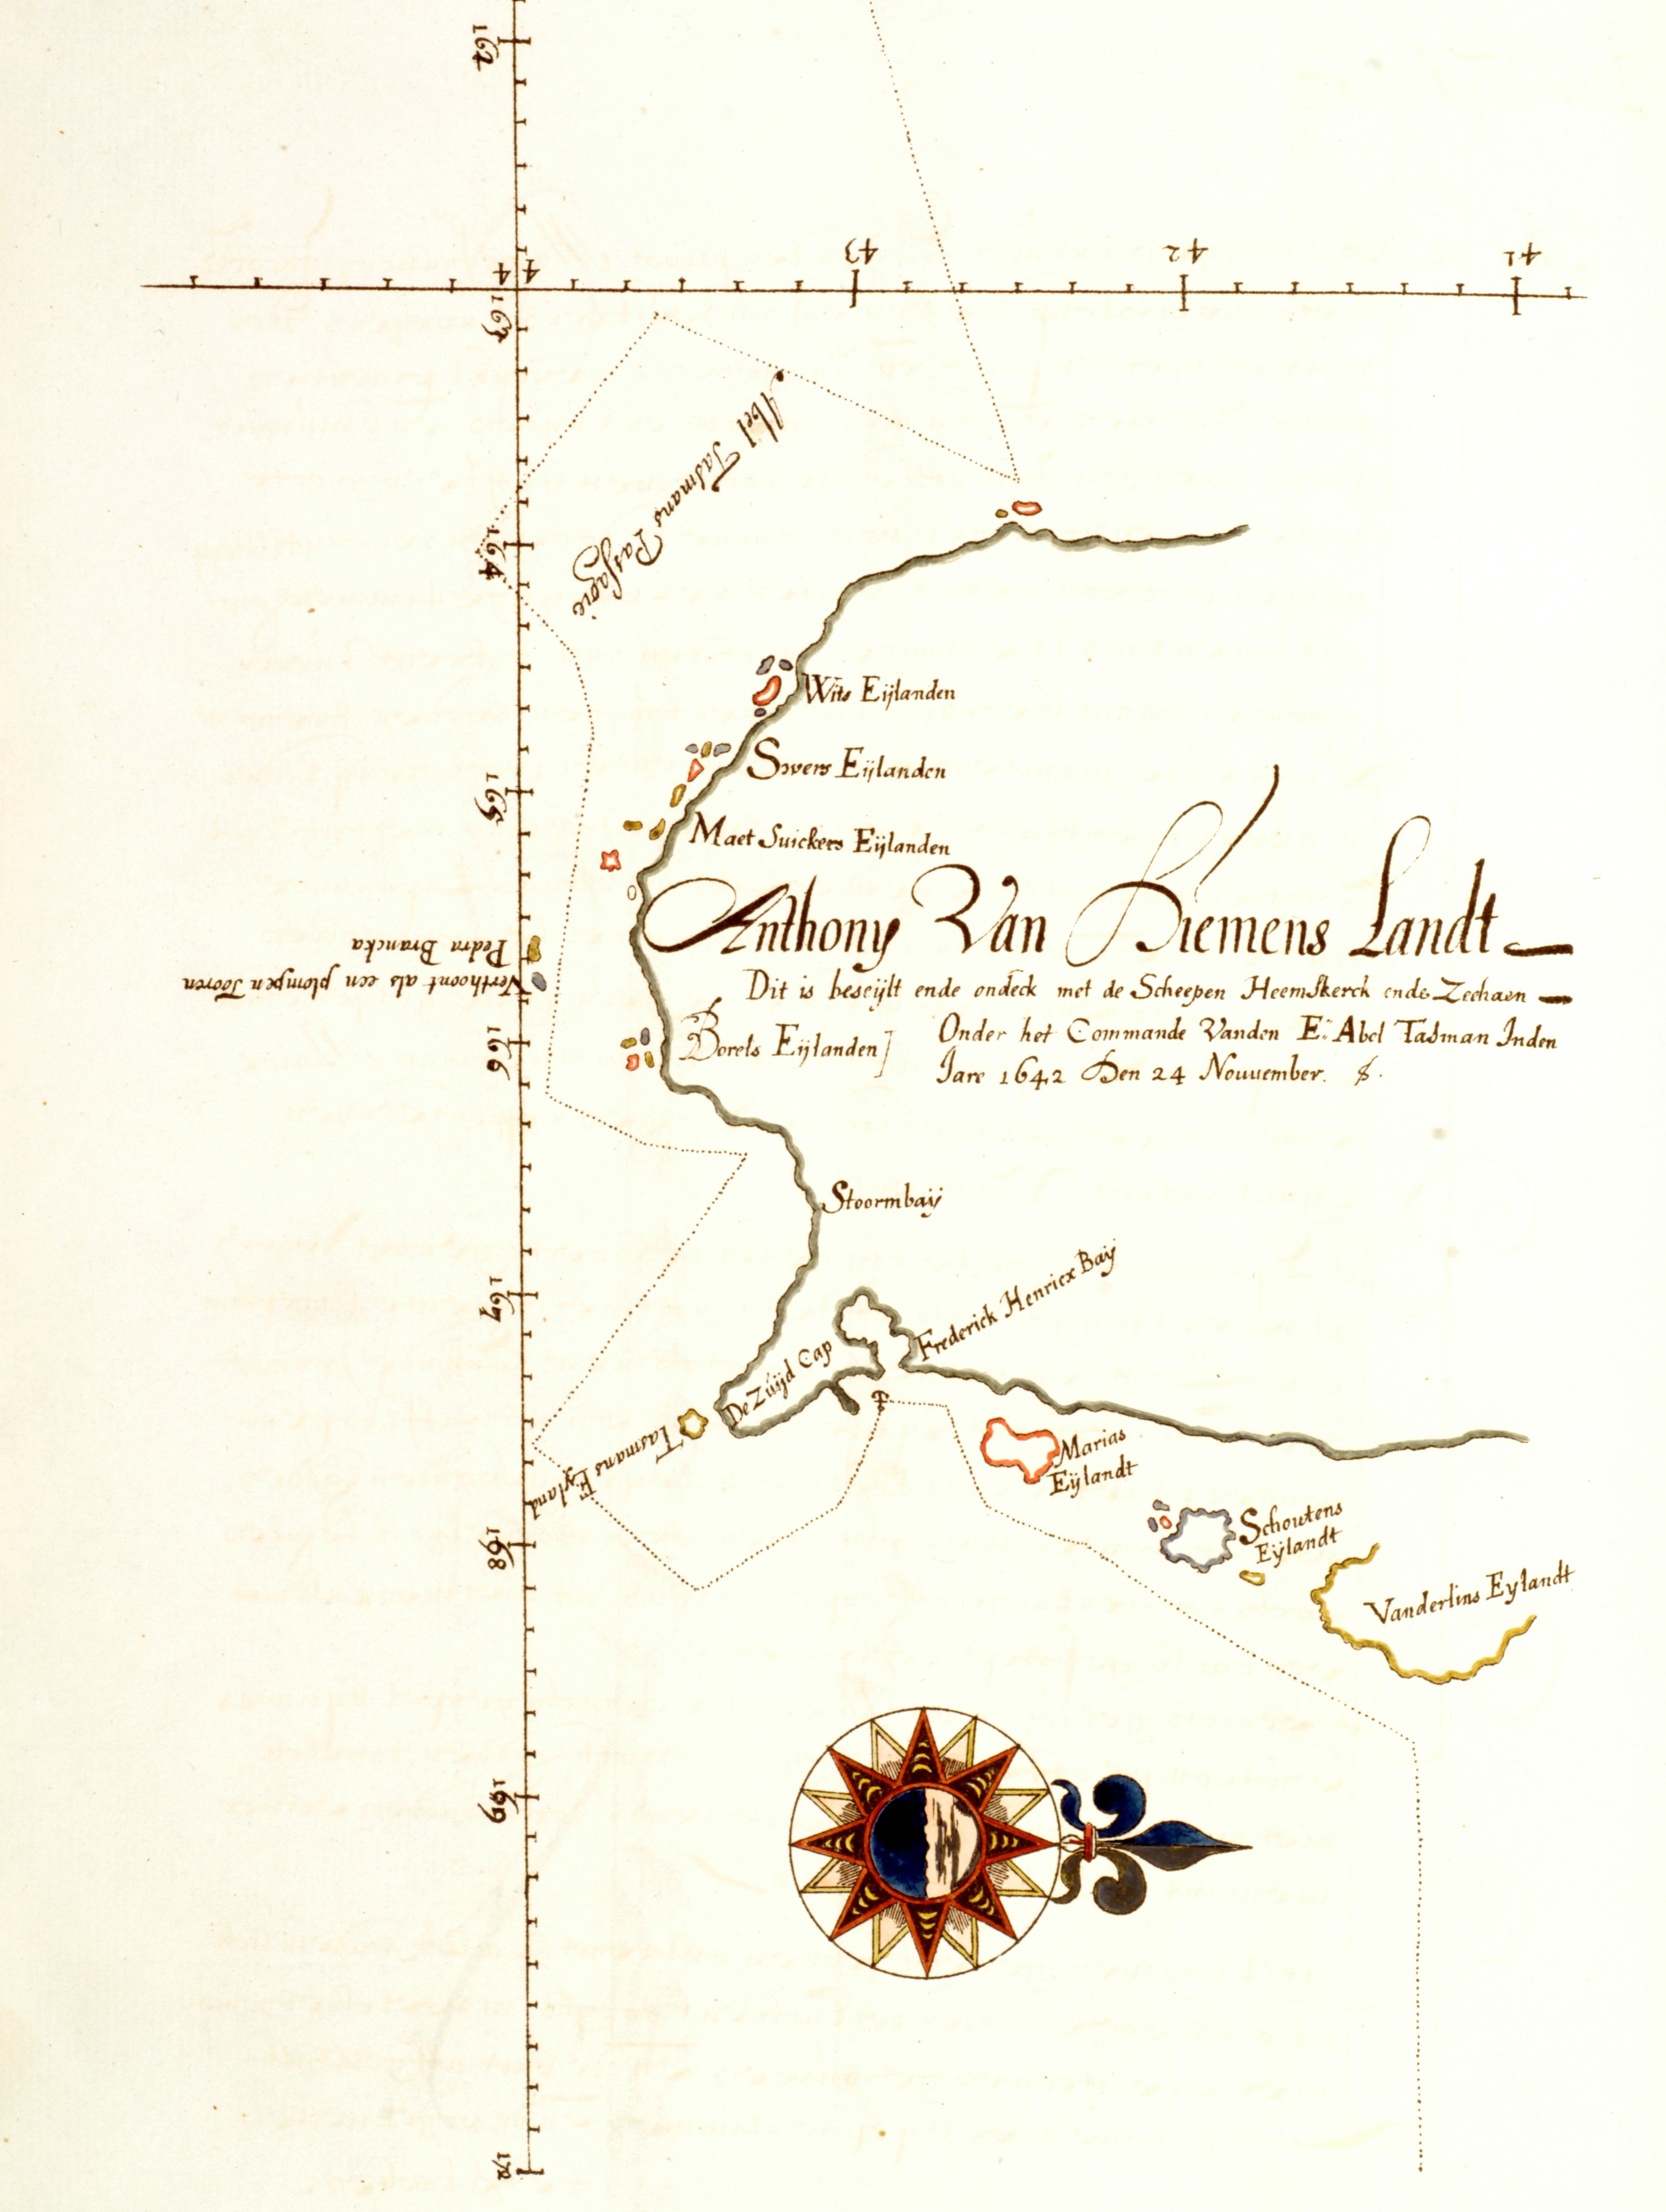 162
43
42
41
44
163
Abel Tasmans Passagie
164
Wits Eijlanden
Swers Eijlanden
165
Maet Suickers Eijlanden
Anthony Van Diemens Landt
Pedra Brancka
Verthoont als een plompen Tooren
Dit is beseijlt ende ondeck met de Scheepen Heemskerck ende Zeehaen
Onder het Commande Vanden E: Abel Tasman Inden
Jare 1642 Den 24 Nouuember. $.
Borels Eijlanden]
166
Stoormbaij
167
Frederick Henricx Baij
De Zúijd Cap
Tasmans Eyland
Marias
Eÿlandt
168
Schoutens
Eÿlandt
Vanderlins Eylandt
169
172